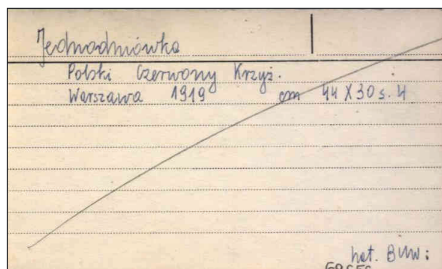 Jednodniówka
Polski Czerwony Krzyż.
Warszawa 1919 cm 44 X 30 s. 4
kat. BUW: